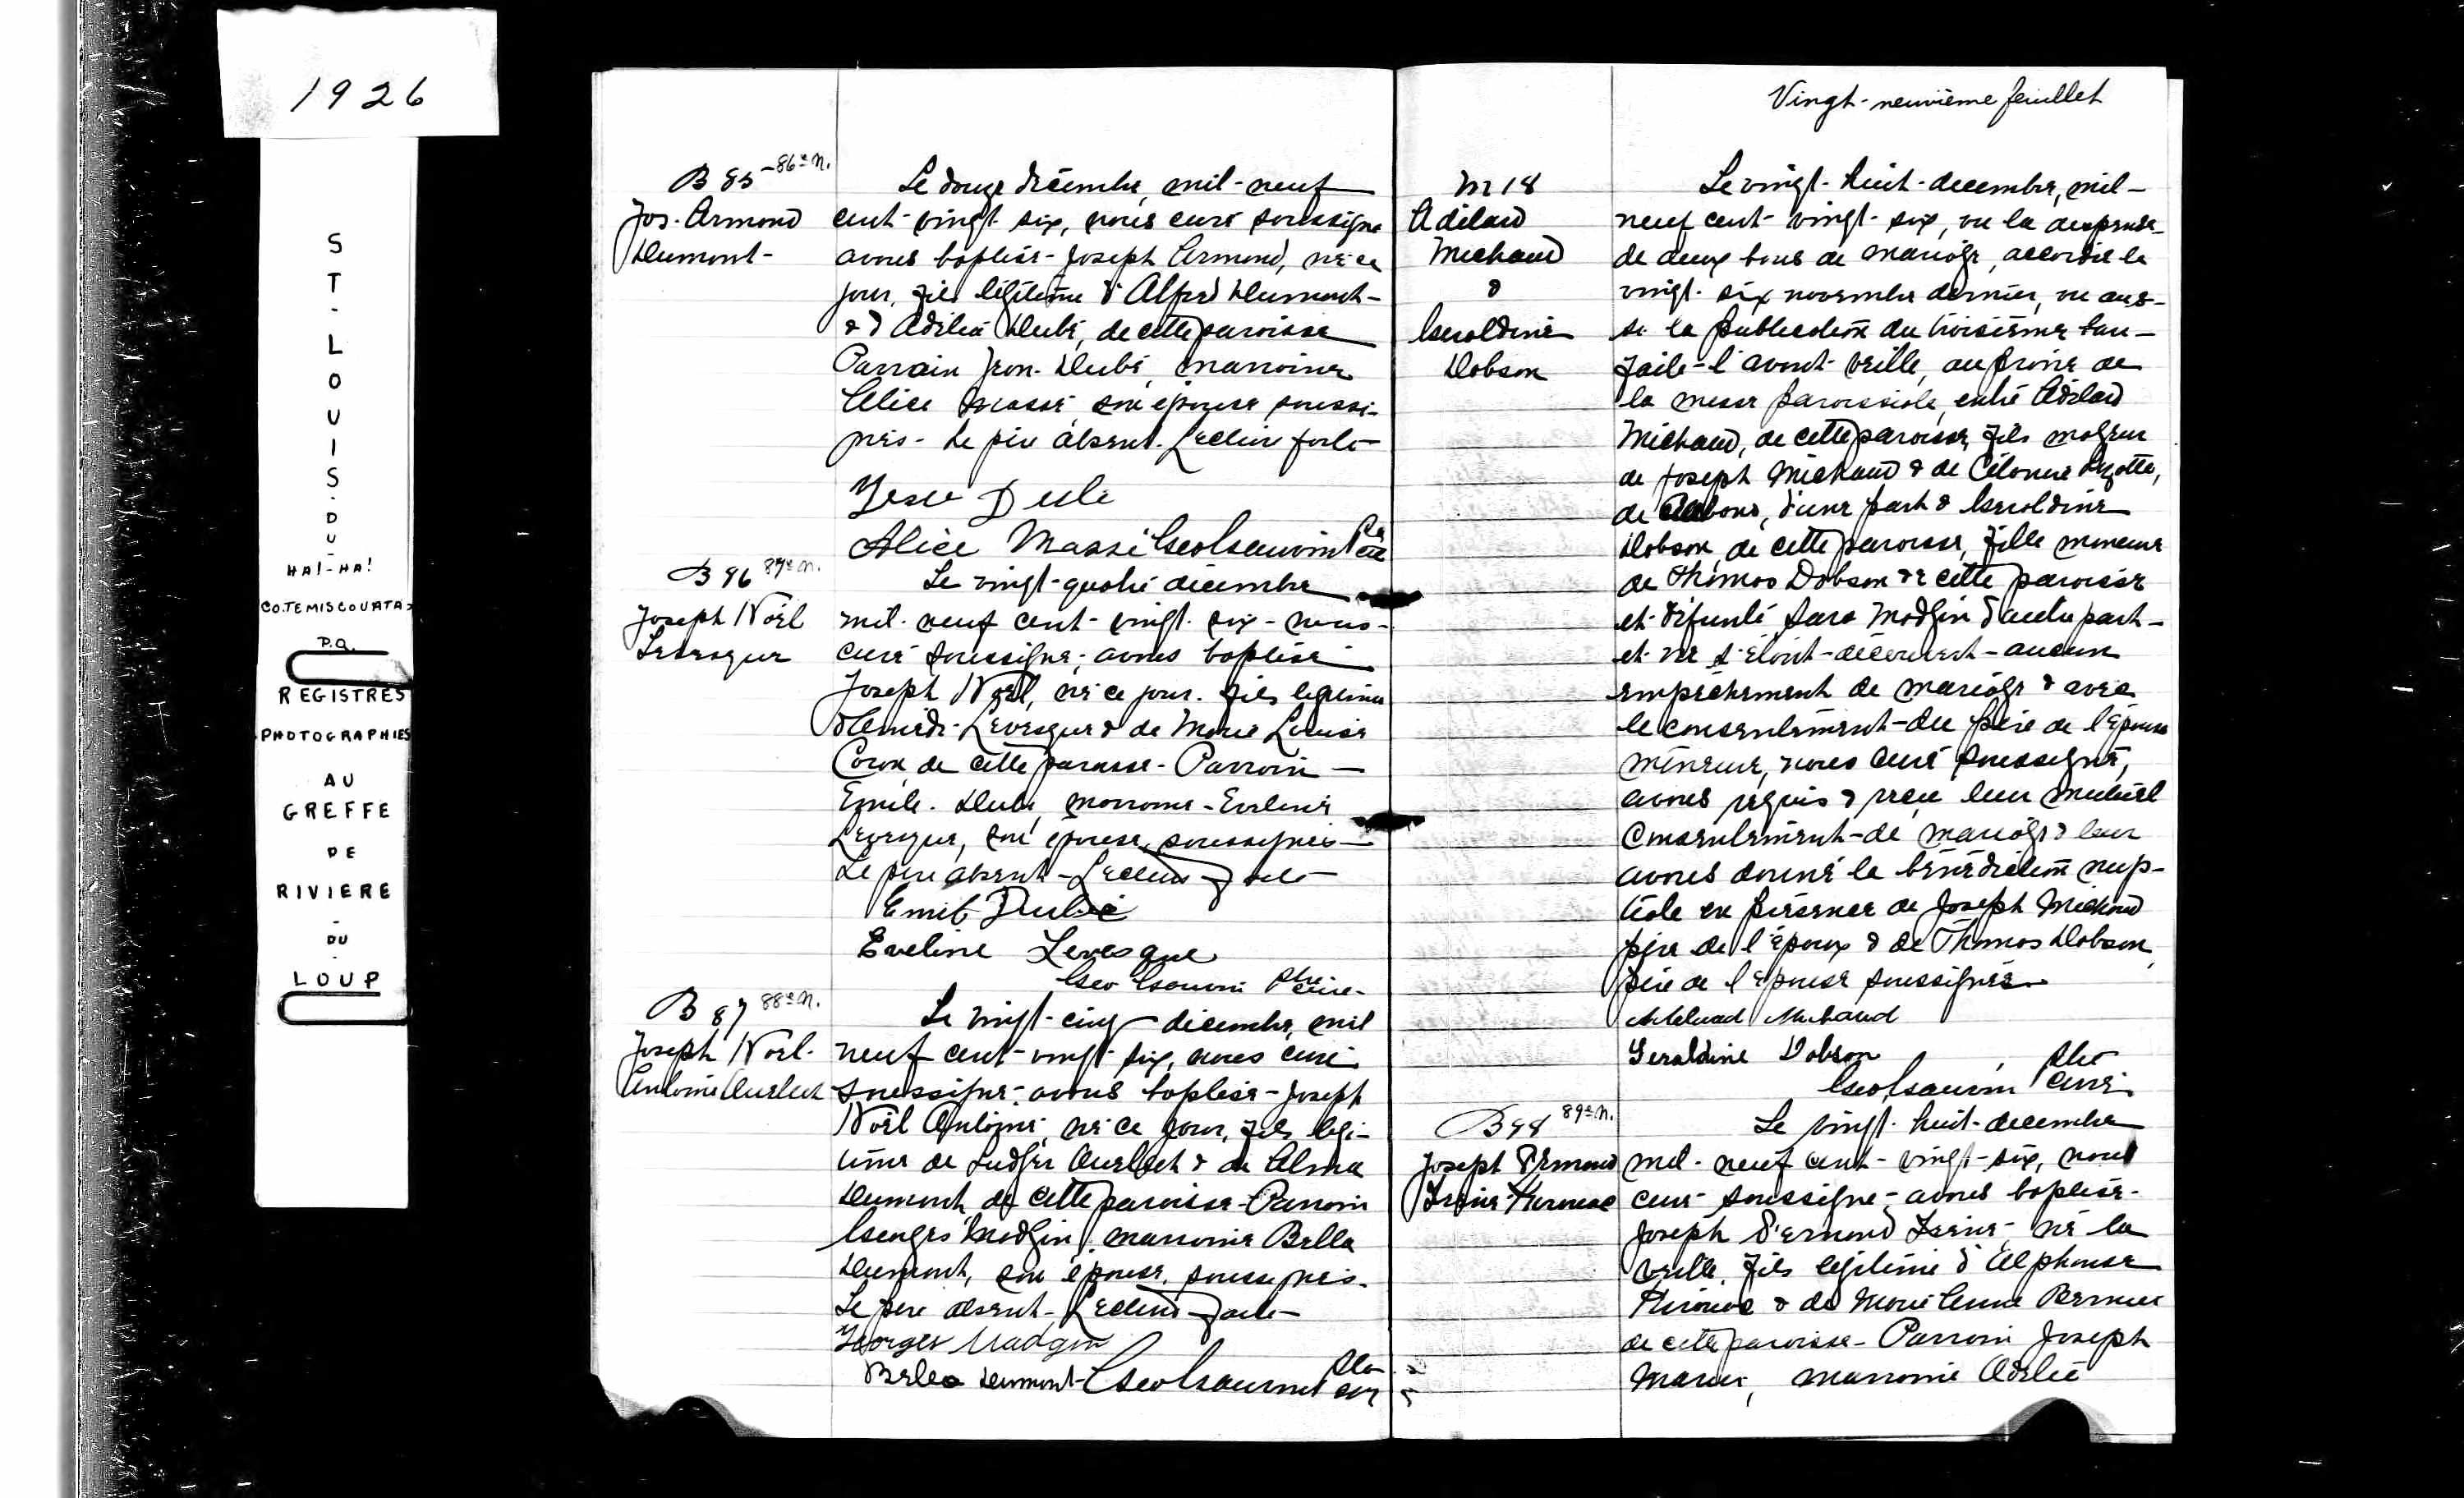 1926
ST-LOUIS-DU-
HA!-HA!
CO.TEMISCOUATA,
P.Q.
REGISTRES
PHOTOGRAPHIES
AU
GREFFE
DE
RIVIERE
-
DU
-
LOUP
B 85 - 86e N.
Jos. Armond
Dumont-
Le douze décembre, mil-neuf
cent-vingt-six, nous curé soussigné
avons baptisé-Joseph Armond, né ce
jour, fils légitime d'Alfred Dumont-
& d'Adélia Dubé, de cette paroisse
Parrain Jean-Dubé, marraine
Alice Massé, son épouse soussi-
gnés-Le père absent. Lecture faite-
Dubé
Alice Massé Geo Ptre
curé
B 86 87e N.
Joseph Noël
Levesque
Le vingt-quatre décembre
mil-neuf cent-vingt-six-nous-
curé soussigné, avons baptisé
Joseph Noël, né ce jour, fils légitime
Levesque & de Marie Louise
Caron de cette paroisse-Parrain-
Emile-Dubé, marraine-Eveline
Levesque, son épouse, soussignés-
Le père absent-Lecture faite-
Emile Dubé
Eveline Levesque
Geo Ptre
curé-
B 87 88e N.
Joseph Noël-
Antoine Ouellet
Le vingt-cinq décembre, mil
neuf cent-vingt-six, nous curé
soussigné, avons baptisé-Joseph
Noël Antoine, né ce jour, fils légi-
time de Ludger Ouellet & de Alma
Dumont de cette paroisse-Parrain
Georges Madgin, marraine Bella
Dumont, son épouse, soussignés-
Le père absent-Lecture faite-
Georges Madgin
Bella Dumont-Geo Ptre
curé
Vingt-neuvième feuillet
M 18
Adélard
Michaud
&
Géraldine
Dobson
Le vingt-huit-décembre, mil-
neuf cent-vingt-six, vu la dispense
de deux bans de mariage, accordée le
vingt-six novembre dernier, vu aus-
si la publication du troisième ban-
faite-l'avant-veille, au prône de
la messe paroissiale, entre Adélard
Michaud, de cette paroisse, fils majeur
de Joseph Michaud & de Lizotte,
de Cabano, d'une part & Géraldine
Dobson de cette paroisse, fille mineure
de Thomas Dobson de cette paroisse
et défunte Sara Madgin d'autre part-
et ne s'étant-découvert-aucun
empêchement de mariage & avec
le consentement-du père de l'épouse
mineure, nous curé soussigné,
avons requis & reçu leur mutuel
consentement-de mariage & leur
avons donné la bénédiction nup-
tiale en présence de Joseph Michaud
père de l'époux & de Thomas Dobson,
père de l'épouse soussignés
Adélard Michaud
Geraldine Dobson
Geo Ptre
curé
B 88 89e N.
Joseph
Le vingt-huit-décembre
mil-neuf cent-vingt-six, nous
curé soussigné-avons baptisé-
Joseph né la
veille, fils légitime d'Alphonse
& de Marie Anne Bernier
de cette paroisse-Parrain Joseph
marraine Adélie